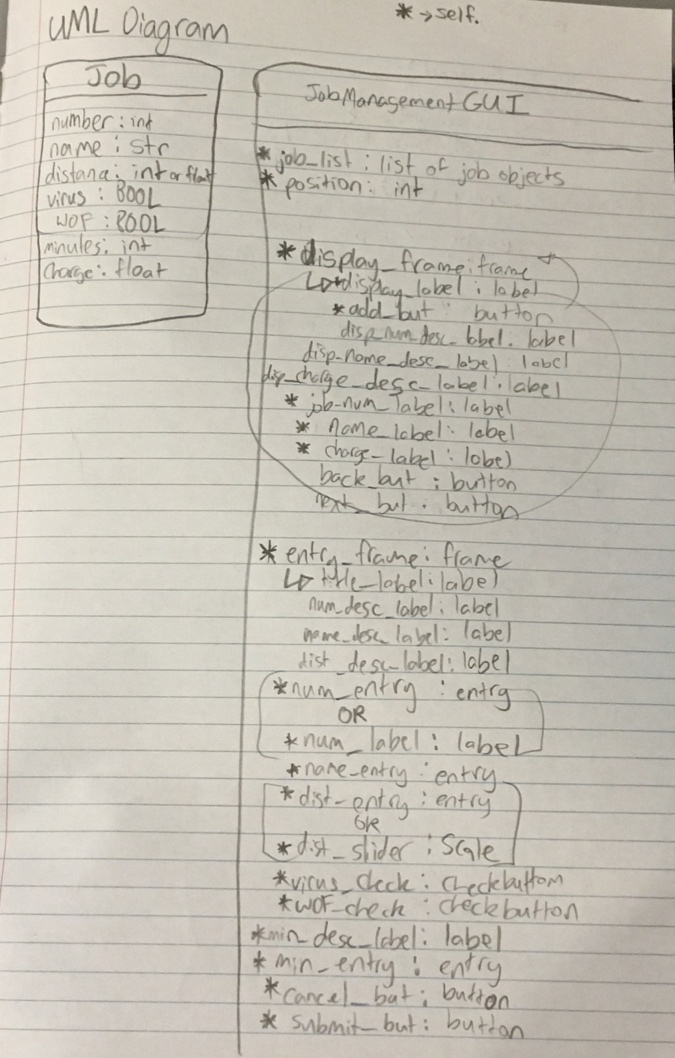 UML Diagram
* → self.
Job
number : int
name : str
distance : int or float
virus : BOOL
WOF : BOOL
minutes : int
charge : float
JobManagementGUI
* job_list : list of job objects
* position : int
* display_frame : frame
↳ *display_label : label
*add_but : button
disp_num_desc_label : label
disp_name_desc_label : label
disp_charge_desc_label : label
* job_num_label : label
* name_label : label
* charge_label : label
back_but : button
next_but : button
* entry_frame : frame
↳ title_label : label
num_desc_label : label
name_desc_label : label
dist_desc_label : label
*num_entry : entry
OR
*num_label : label
*name_entry : entry
*dist_entry : entry
OR
*dist_slider : Scale
*virus_check : checkbutton
*WOF_check : checkbutton
*min_desc_label : label
* min_entry : entry
*cancel_but : button
* submit_but : button